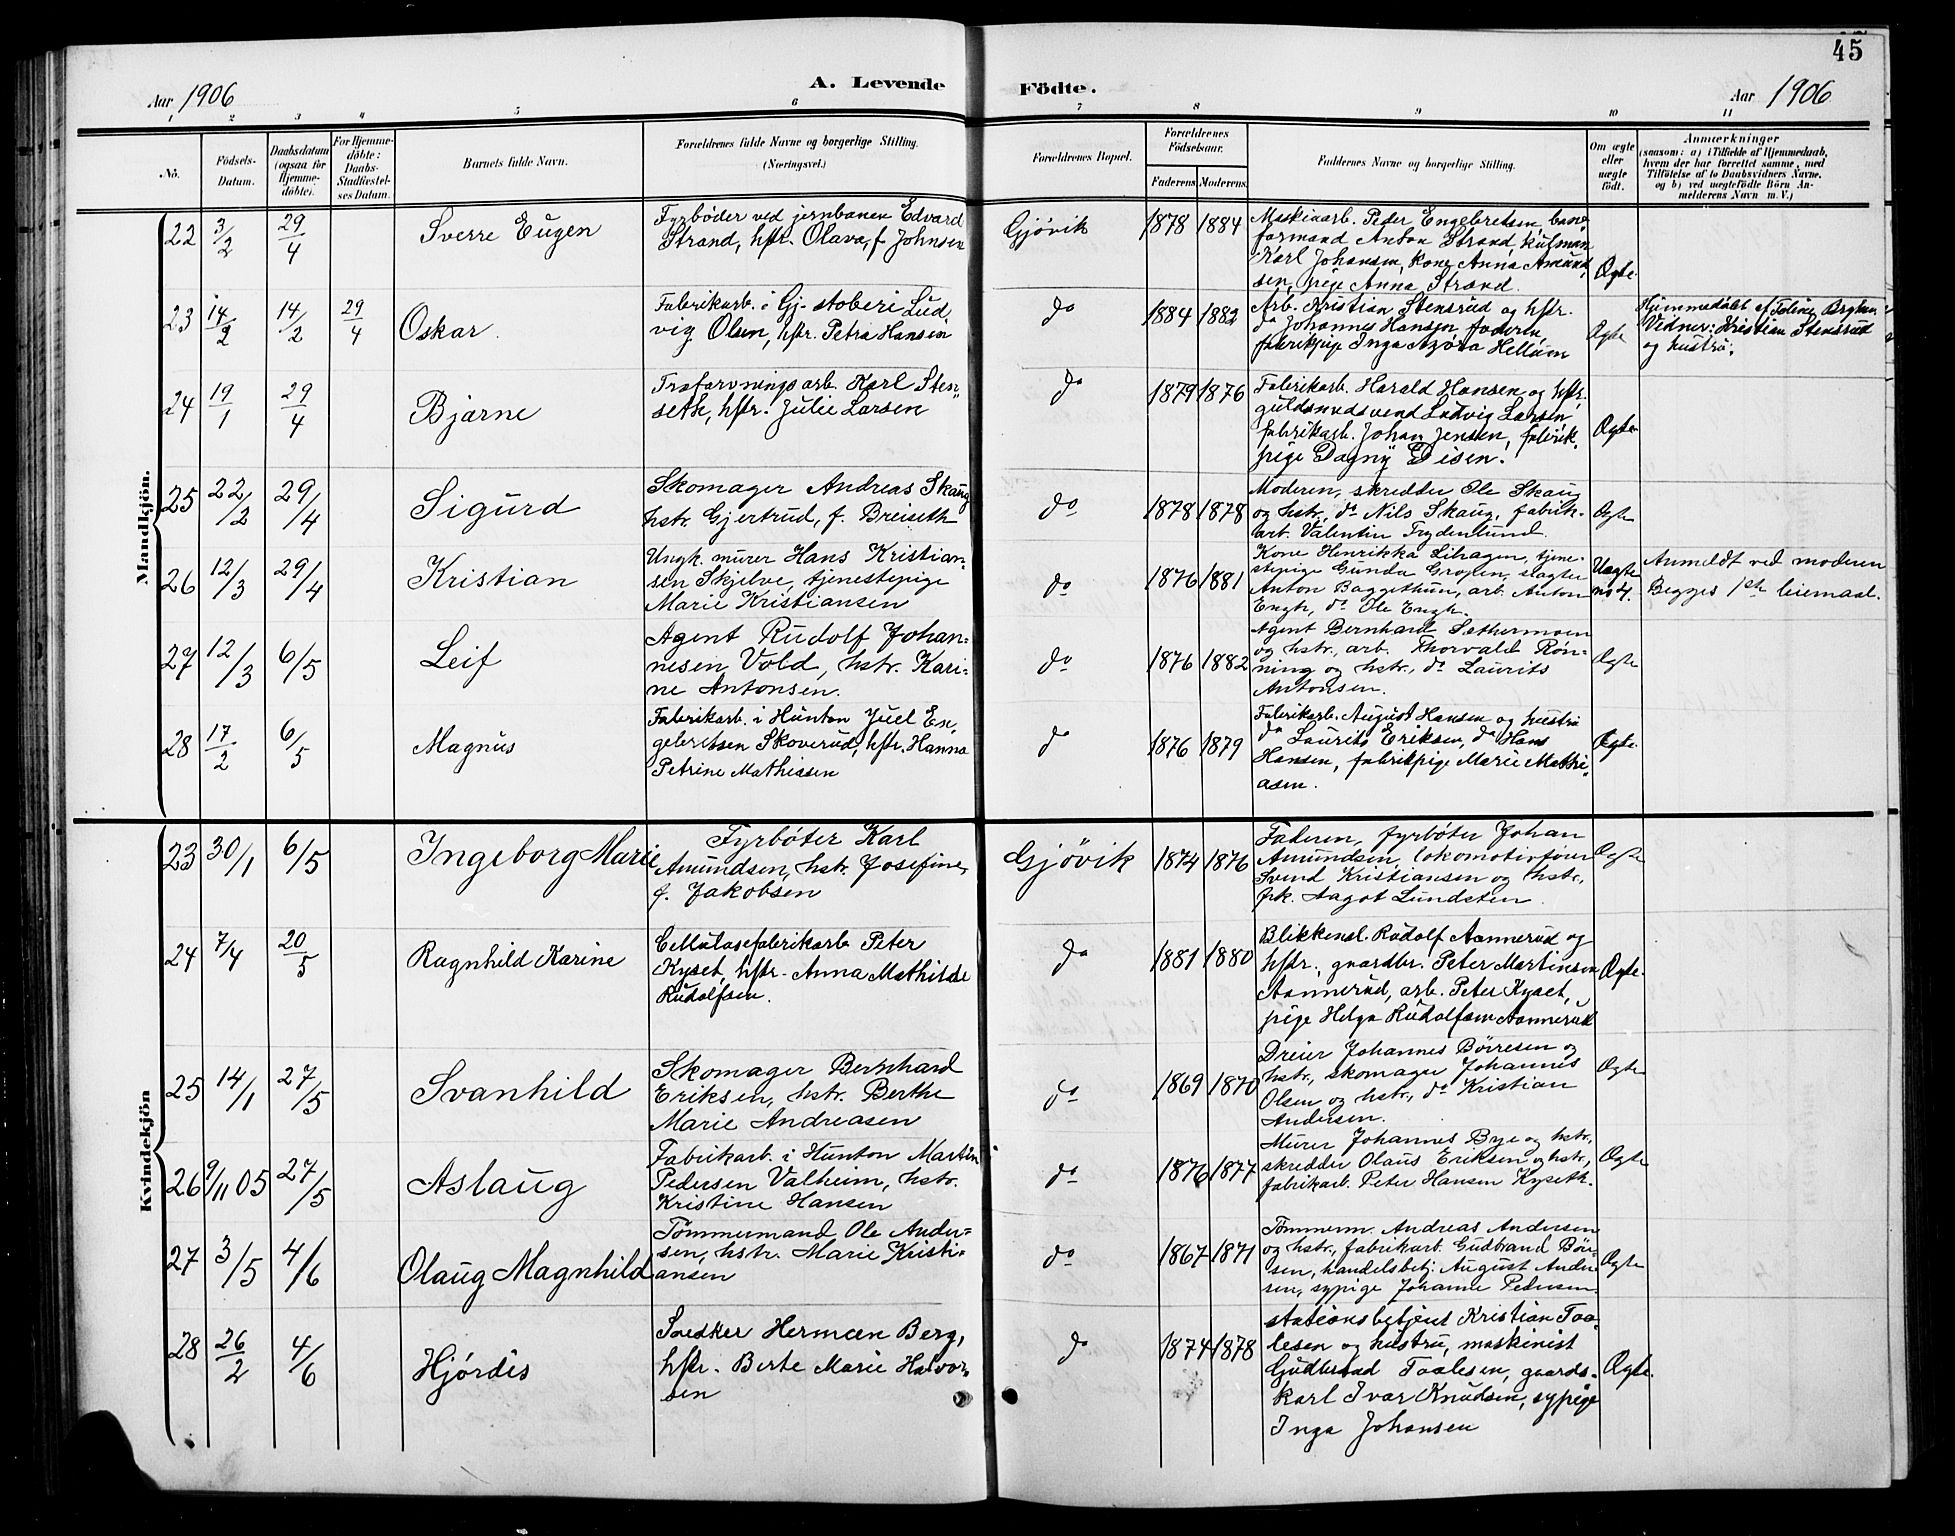 45
Aar 1906
A. Levende Födte.
Aar 1906
1 2 3 4 5 6 7 8 9 10 11
No.
Födsels-Datum.
Daabsdatum (ogsaa for Hjemme-döbte).
For Hjemme-döbte: Daabs-Stadfæstel-ses Datum.
Barnets fulde Navn.
Forældrenes fulde Navne og borgerlige Stilling.
(Næringsvei.)
Forældrenes Bopæl.
Forældrenes Födselsaar.
Faderens. Moderens.
Faddernes Navne og borgerlige Stilling.
Om ægte eller uægte födt.
Anmærkninger
(saasom: a) i Tilfælde af Hjemmedaab, hvem der har forrettet samme, med Tilföielse af to Daabsvidners Navne, og b) ved uægtefödte Börn An-melderens Navn m. V.)
Mandkjön.
22 3/2 29/4 Sverre Eugen
Fyrbøder ved jernbanen Edvard
Strand, hstr. Olava, f. Johnsen
Gjøvik 1878 1884
Maskinarb. Peder Engebretsen, bane-
formand Anton Strand, kulman
Karl Johansen, kone Anna Amund
sen, pige Anna Strand.
Ægte
23 14/2 14/2 29/4 Oskar.
Fabrikarb. i Gj. støberi Lud
vig Olsen, hstr. Petra Hansen
do 1884 1882
Arb. Kristian Stensrud og hstr.
do Johannes Hansen, faderen
fabrikpige Inga Hellum
Ægte
Hjemmedøbt af
Vidner: Kristian Stensrud
og hustru.
24 19/1 29/4 Bjarne
Træfarvningsarb. Karl Sten-
seth, hstr. Julie Larsen
do 1879 1876
Fabrikarb. Harald Hansen og hstr.
guldsmedsvend Ludvig Larsen
fabrikarb. Johan Jensen, fabrik-
pige Dagny Disen.
Ægte
25 22/2 29/4 Sigurd
Skomager Andreas Skaug
hstr. Gjertrud, f. Breiseth
do 1878 1878
Moderen, skredder Ole Skaug
og hstr., do Nils Skaug, fabrik-
arb. Valentin Frydenlund.
Ægte
26 12/3 29/4 Kristian
Ungk. murer Hans Kristian-
sen Skjelve, tjenestepige
Marie Kristiansen
do 1876 1881
Kone Henrikka Lihagen, tjene-
stepige Gunda Gropen, slagter
Anton Baggethun, arb. Anton
Engh, do Ole Engh.
Uægte
no 4.
Anmeldt ved moderen
Begges 1ste leiemaal.
27 12/3 6/5 Leif
Agent Rudolf Johan-
nesen Vold, hstr. Kari-
ne Antonsen.
do 1876 1882
Agent Bernhard Sethermoen
og hstr., arb. Thorvald Røn-
ning og hstr., do Laurits
Antonsen.
Ægte
28 17/2 6/5 Magnus
Fabrikarb. i Hunton Juel En-
gebretsen Skoverud, hstr. Hanna
Petrine Mathissen
do 1876 1879
Fabrikarb. August Hansen og hustru
do Laurits Eriksen, do Hans
Hansen, fabrikpige Marie Mathi-
asen.
Ægte.
Kvindekjön
23 30/1 6/5 Ingeborg Marie
Fyrbøter Karl
Amundsen, hstr. Josefine,
f. Jakobsen
Gjøvik 1874 1876
Faderen, fyrbøter Johan
Amundsen, lokomotivfører
Svend Kristiansen og hstr.,
frk. Aagot Lundsten.
Ægte
24 7/4 20/5 Ragnhild Karine
Cellulosefabrikarb. Peter
Kyset, hstr. Anna Mathilde
Rudolfsen.
do 1881 1880
Blikkensl. Rudolf Aannerud og
hstr., gaardbr. Peter Martinsen
Aannerud, arb. Peter Kyset,
pige Helga Rudolfsen Aannerud
Ægte.
25 14/1 27/5 Svanhild
Skomager Bernhard
Eriksen, hstr. Berthe
Marie Andreasen
do 1869 1870
Dreier Johannes Børresen og
hstr., skomager Johannes
Olsen og hstr., do Kristian
Andersen.
Ægte
26 9/11 05 27/5 Aslaug
Fabrikarb. i Hunton Martin
Pedersen Valheim, hstr.
Kristine Hansen
do 1876 1877
Murer Johannes Bye og hstr.,
skredder Olaus Eriksen og hstr.,
fabrikarb. Peter Hansen Kyseth.
Ægte
27 3/5 4/6 Olaug Magnhild
Tømmermand Ole Ander-
sen, hstr. Marie Kristi-
ansen
do 1867 1871
Tømmerm. Andreas Andersen
og hstr., fabrikarb. Gudbrand Bør-
sen, handelsbetj. August Ander-
sen, sypige Johanne Pedersen.
Ægte
28 26/2 4/6 Hjørdis
Snedker Herman Berg,
hstr. Berte Marie Halvor-
sen
do 1874 1878
Stationsbetjent Kristian Taa-
lesen og hustru, maskinist
Gudbrand Taalesen, gaards-
karl Ivar Knudsen, sypige
Inga Johansen
Ægte.